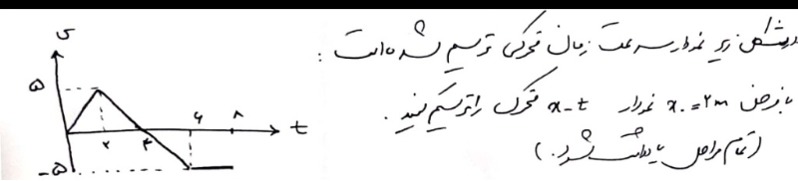 در شکل زیر نمودار سرعت زمان متحرکی ترسیم شده است :
با فرض x₀ = ۲m نمودار x-t متحرک را ترسیم کنید .
(تمام مراحل یادداشت شود .)
v
۵
۲
۴
۶
۸
t
-۵